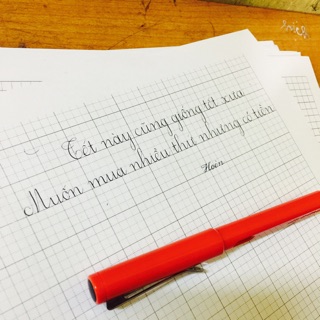 Tết này cũng giống tết xưa
Muốn mua nhiều thứ nhưng có tiền